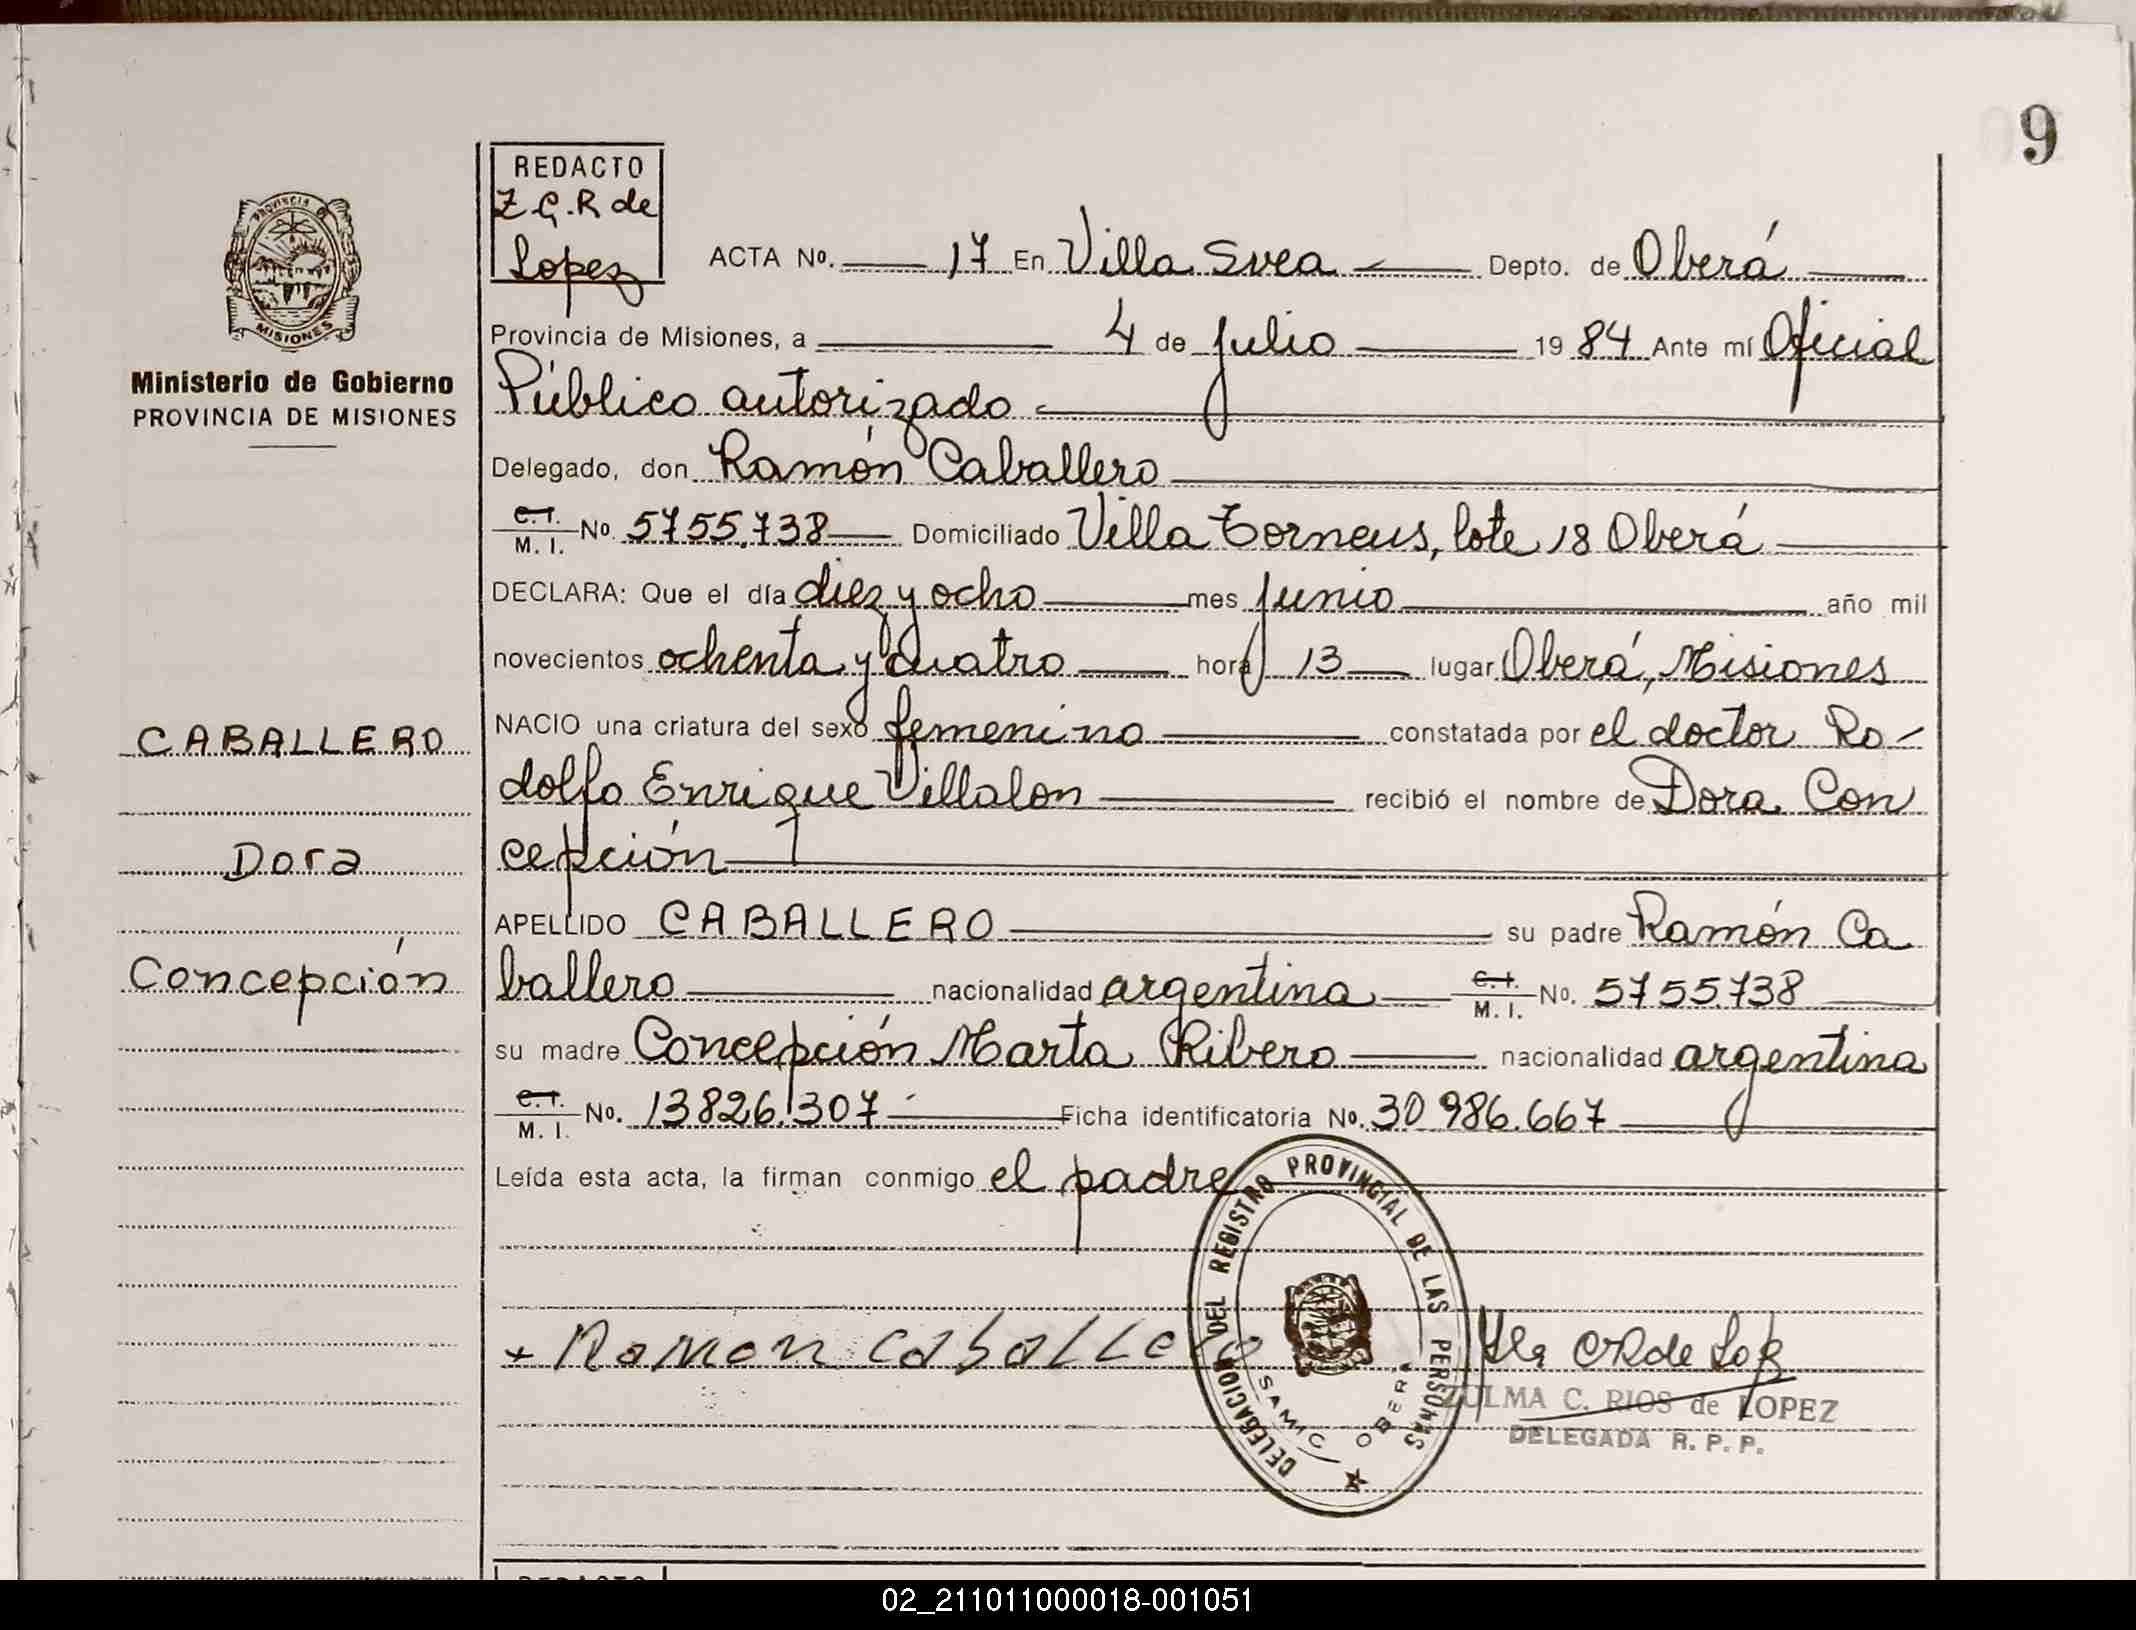 9
REDACTO
Z.G.R de
Lopez
PROVINCIA D
MISIONES
Ministerio de Gobierno
PROVINCIA DE MISIONES
ACTA No. 17 En Villa Svea Depto. de Oberá
Provincia de Misiones, a 4 de julio 1984 Ante mí Oficial
Público autorizado
Delegado, don Ramón Caballero
C.I. M.I. No. 5755.738 Domiciliado Villa Torneus, lote 18 Oberá
DECLARA: Que el día diez y ocho mes junio año mil
novecientos ochenta y cuatro hora 13 lugar Oberá, Misiones
NACIO una criatura del sexo femenino constatada por el doctor Ro-
dolfo Enrique Villalon recibió el nombre de Dora Con
cepción
APELLIDO CABALLERO su padre Ramón Ca
ballero nacionalidad argentina C.I. M.I. No. 5755.738
su madre Concepción Marta Ribero nacionalidad argentina
C.I. M.I. No. 13826.307 Ficha identificatoria No. 30 986.667
Leída esta acta, la firman conmigo el padre
CABALLERO
Dora
Concepción
Ramon Caballero
DELEGACION DEL REGISTRO PROVINCIAL DE LAS PERSONAS
SAMIC OBERA
ZULMA C. RIOS de LOPEZ
DELEGADA R. P. P.
REDACTO
02_211011000018-001051